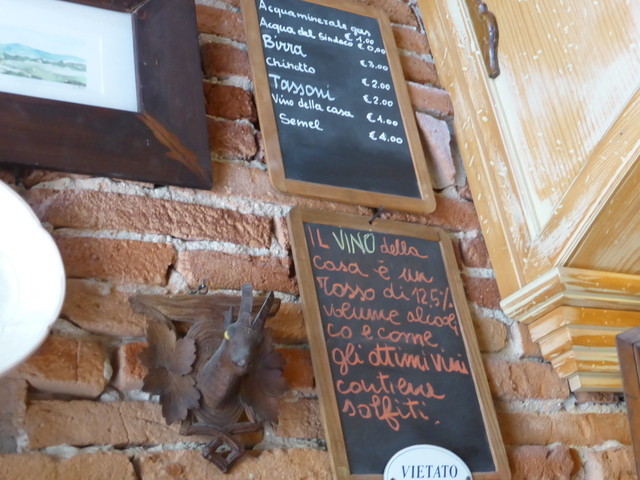 Acqua minerale gas € 1,00
Acqua del Sindaco € 0,00
Birra € 3,00
Chinotto € 2,00
Tassoni € 2,00
Vino della casa € 1,00
Semel € 4,00
IL VINO della
casa è un
rosso di 12,5%
volume alcoli
co e come
gli ottimi vini
contiene
solfiti.
VIETATO